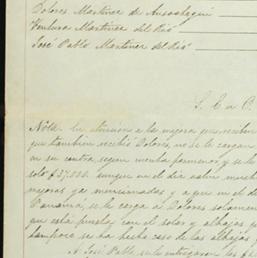 Dolores Martinez de Ansoategui
Ventura Martinez del Rio
José Pablo Martinez del Rio
S. E. u O.
Nota. En atencion a la mejora que reciben
que tambien recibió Dolores, no se le cargan
en su contra segun mucha pormenor, y se le
solo $37,000. aunque en el dia valen mucho
mejoras ya mencionadas y a que en el de
Panamá, se le carga a Dolores solamente
que esta puesta, con el solar y alhajas que
tampoco se ha hecho caso de las alhajas y
A José Pablo, se le entregaron los $